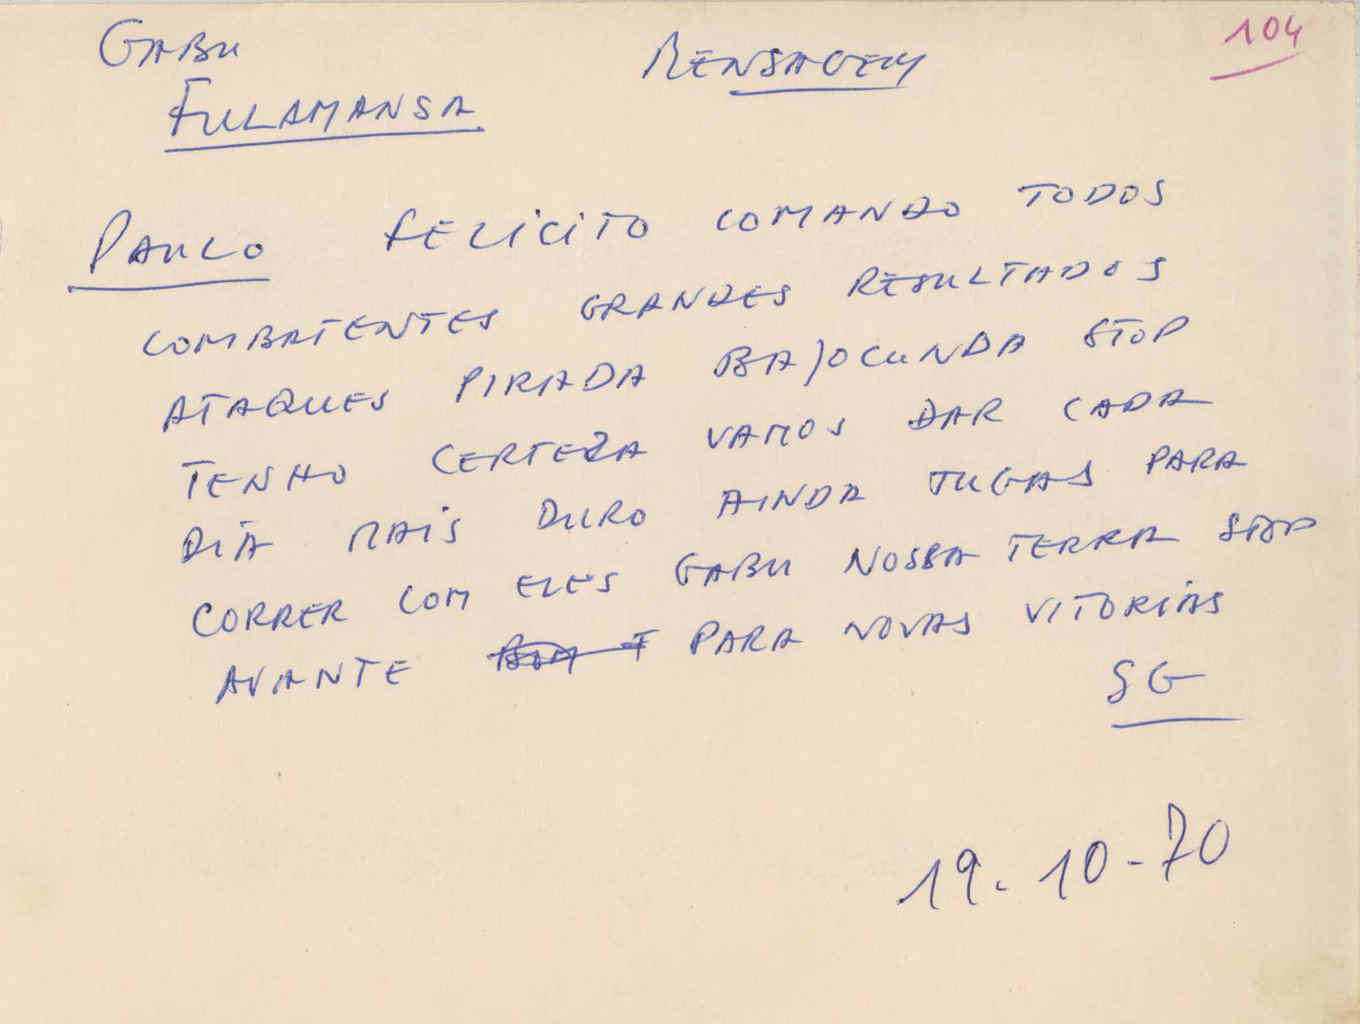 104
GABU MENSAGEM
FULAMANSA
PAULO FELICITO COMANDO TODOS
COMBATENTES GRANDES RESULTADOS
ATAQUES PIRADA BAJOCUNDA STOP
TENHO CERTEZA VAMOS DAR CADA
DIA MAIS DURO AINDA TUGAS PARA
CORRER COM ELES GABU NOSSA TERRA STOP
AVANTE PARA NOVAS VITORIAS
SG
19.10-70